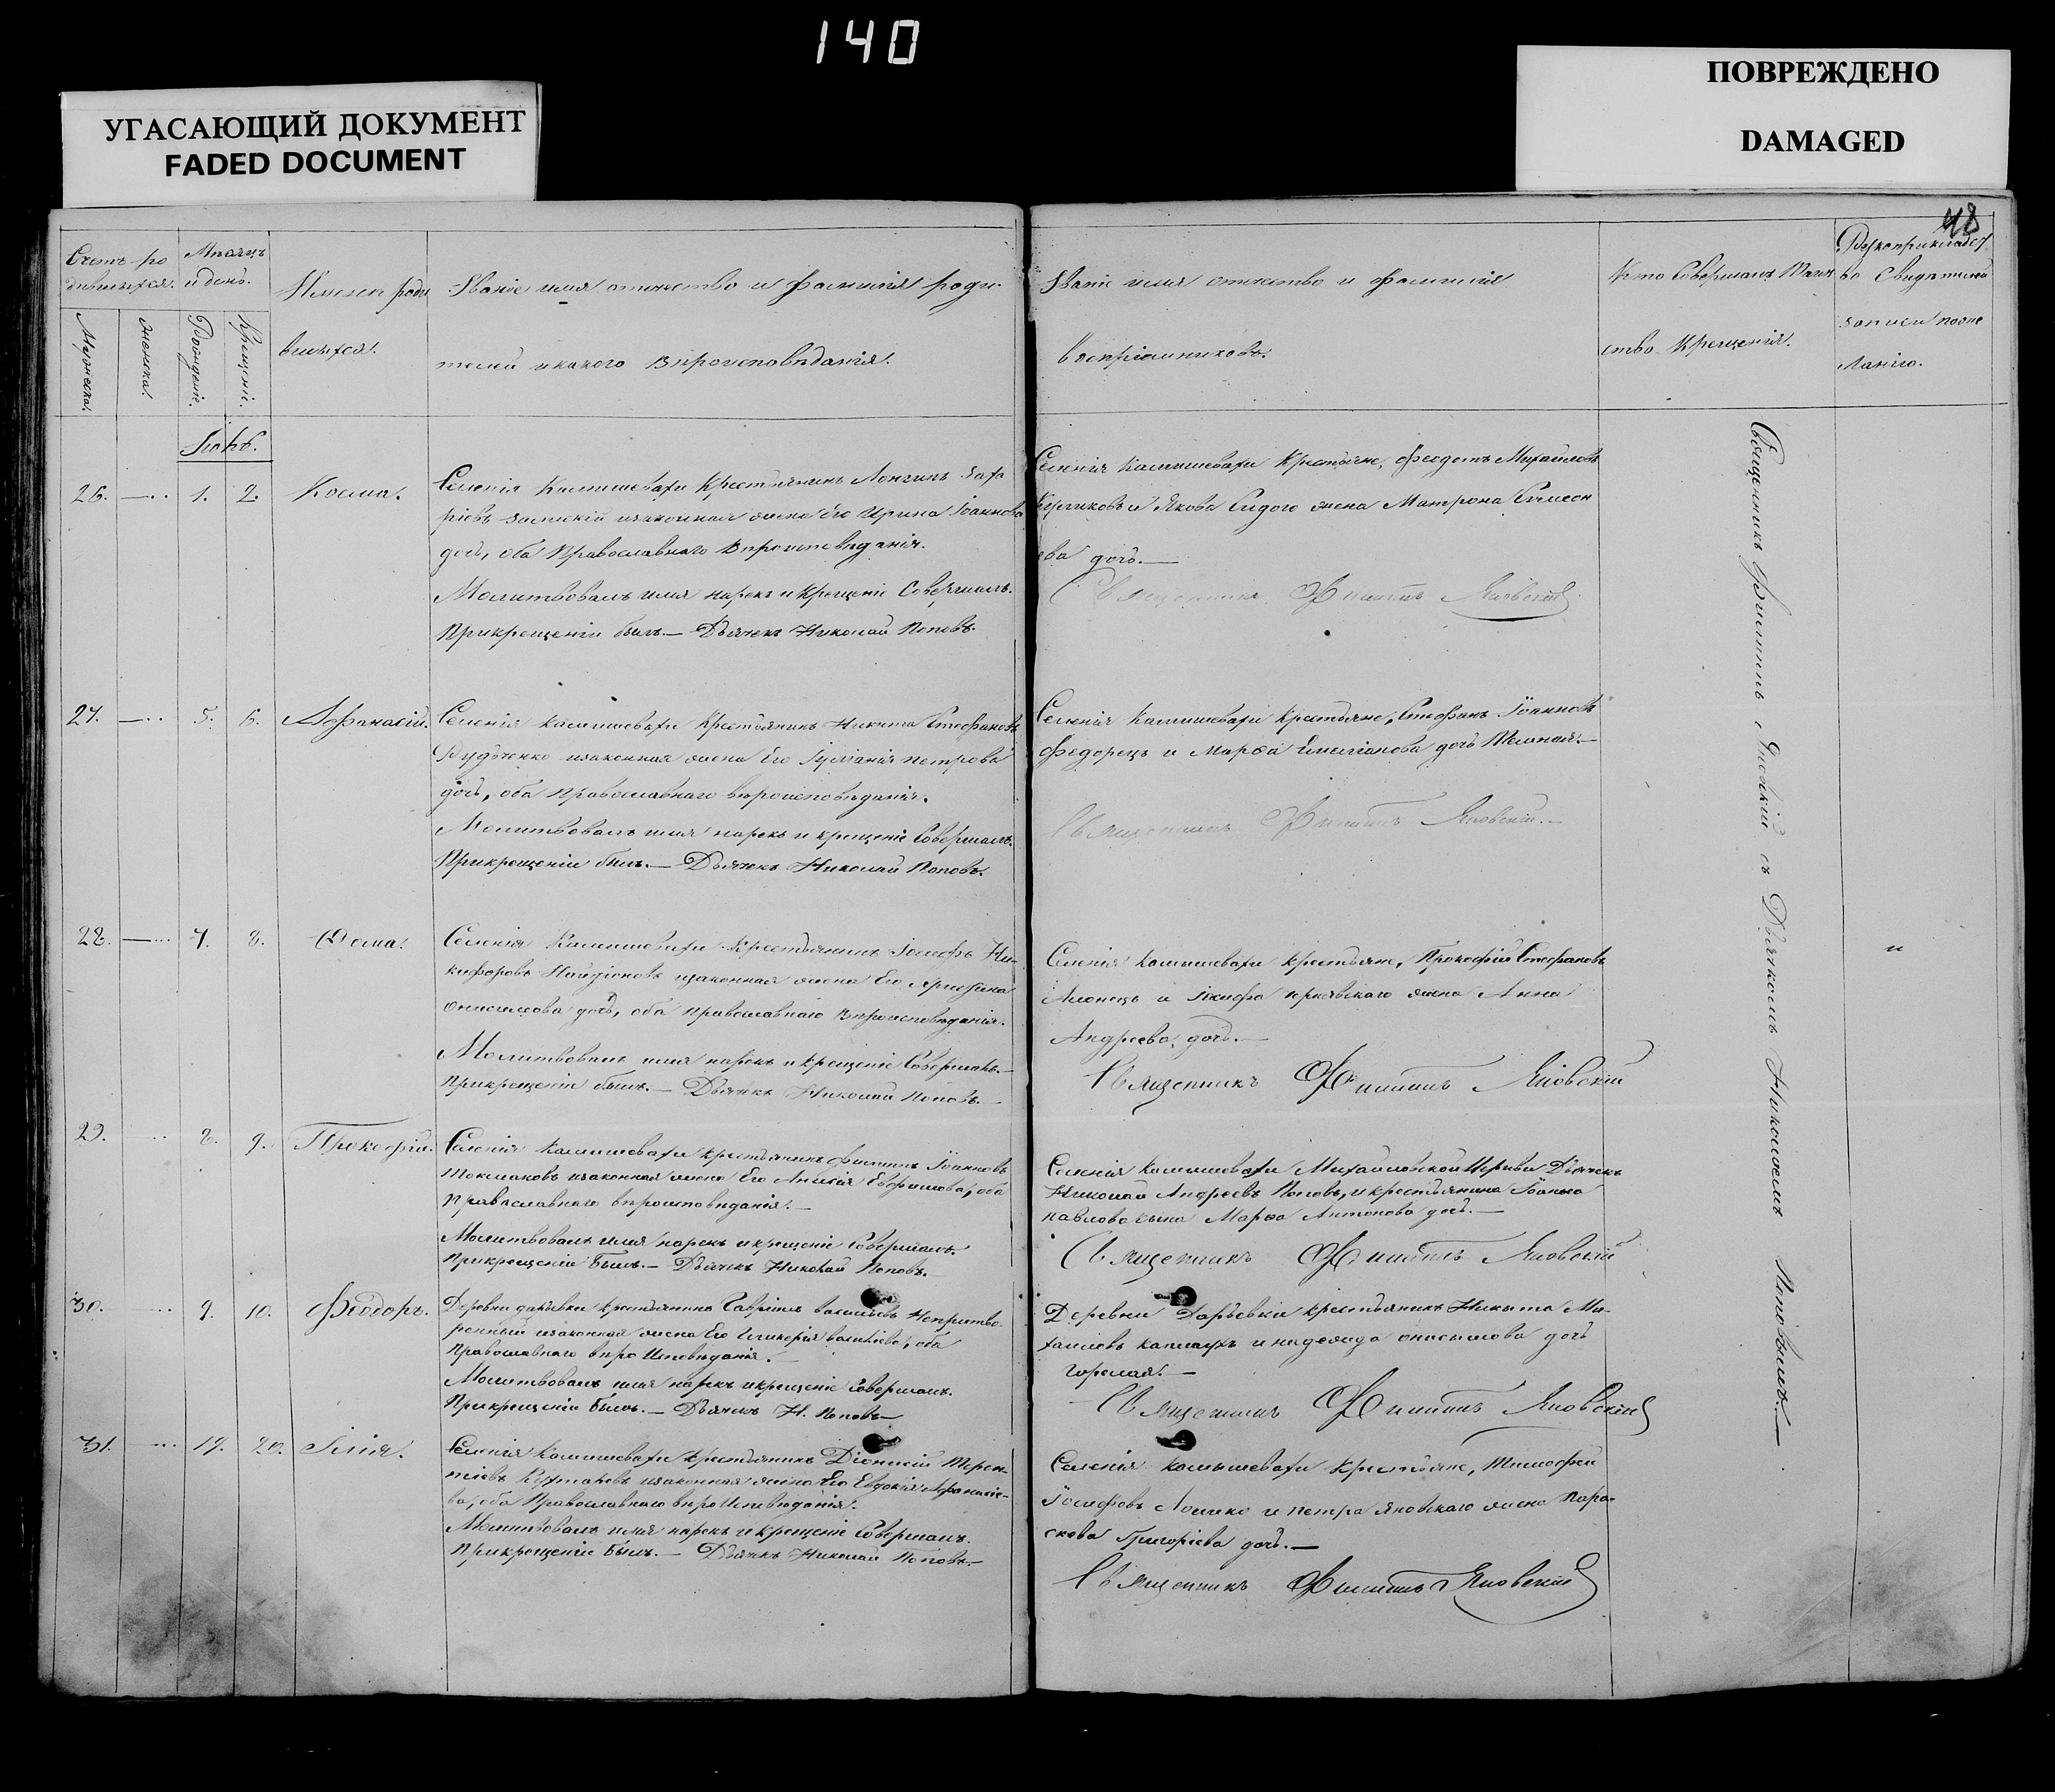 140
УГАСАЮЩИЙ ДОКУМЕНТ
FADED DOCUMENT
ПОВРЕЖДЕНО
DAMAGED
48
Счетъ ро
дившихся.
Мѣсяцъ
и день.
Мужеска.
женска.
Рожденіе.
Крещеніе.
Имена роди
вшихся.
Званіе имя отчество и фамилія роди-
телей и какого вѣроисповѣданія.
Званіе имя отчество и фамилія
воспріемниковъ.
Кто Совершалъ Таин
ство Крещенія.
Рукоприкладст
во Свидѣтелей
записи по же
ланію.
26. 1. 2. Косма.
Селенія Камышевахи Крестьянинъ Лонгинъ Заха
ріевъ изаконная жена Его Ирина Іоаннова
дочь, оба Православнаго Вѣроисповѣданія.
Молитвовалъ имя нарекъ и Крещеніе Совершалъ.
При крещеніи былъ.— Дьячекъ Николай Поповъ.
Селенія Камышевахи Крестьяне, Феодотъ Михайловъ
Куликовъ и Якова Сидого жена Матрона Симеон
ова дочь.—
Священникъ Филиппъ Яновскій
27. 5. 6. Афанасій.
Селенія Камышевахи Крестьянинъ Никита Стефановъ
Рудченко изаконная жена Его Іуліанія Петрова
дочь, оба Православнаго вѣроисповѣданія.
Молитвовалъ имя нарекъ и крещеніе Совершалъ.
При крещеніи былъ.— Дьячекъ Николай Поповъ.
Селенія Камышевахи Крестьяне, Стефанъ Іоанновъ
Федорецъ и Марѳа Емеліанова дочь
Священникъ Филиппъ Яновскій.—
28. 7. 8. Фома.
Селенія Камышевахи Крестьянинъ Іосифъ Ни-
кифоровъ изаконная жена Его
Онисимова дочь, оба православнаго Вѣроисповѣданія.
Молитвовалъ имя нарекъ и крещеніе Совершалъ.—
При крещеніи былъ.— Дьячекъ Николай Поповъ.—
Селенія Камышевахи крестьяне, Прокофій Стефановъ
и жена Анна
Андреева дочь.—
Священникъ Филиппъ Яновскій
29. 8. 9. Прокофій.
Селенія Камышевахи крестьянинъ Филиппъ Іоанновъ
Токмаковъ изаконная жена Его Анисія Евфимова, оба
Православнаго вѣроисповѣданія.—
Молитвовалъ имя нарекъ и крещеніе Совершалъ.
При крещеніи Былъ.— Дьячекъ Николай Поповъ.—
Селенія Камышевахи Михайловской Церкви Дьячекъ
Николай Андреевъ Поповъ, и крестьянина Іоанна
Павлова сына Марѳа Антонова дочь.—
Священникъ Филиппъ Яновскій
30. 9. 10. Феодоръ.
Деревни Дарьевки крестьянинъ Гавріилъ Васильевъ Непритво-
ренный изаконная жена Его Гликерія Васильева, оба
Православнаго вѣроИсповѣданія.—
Молитвовалъ имя нарекъ и крещеніе Совершалъ.
При крещеніи Былъ.— Дьячекъ Н. Поповъ—
Деревни Дарьевки крестьянинъ Никита Ми-
хайловъ и Надежда Онисимова дочь
Горелая.—
Священникъ Филиппъ Яновскій
31. 19. 20. Илія.
Селенія Камышевахи Крестьянинъ Діонисій Терен-
тіевъ изаконная жена Его Евдокія Афанасіе-
ва, оба Православнаго вѣроИсповѣданія.
Молитвовалъ имя нарекъ и крещеніе Совершалъ.
При крещеніи Былъ.— Дьячекъ Николай Поповъ.—
Селенія Камышевахи Крестьяне, Тимофей
Іосифовъ и Петра Яновскаго жена Пара-
скева Григоріева дочь.—
Священникъ Филиппъ Яновскій
Священникъ Филиппъ Яновскій съ Дьячкомъ Николаемъ Поповымъ.—